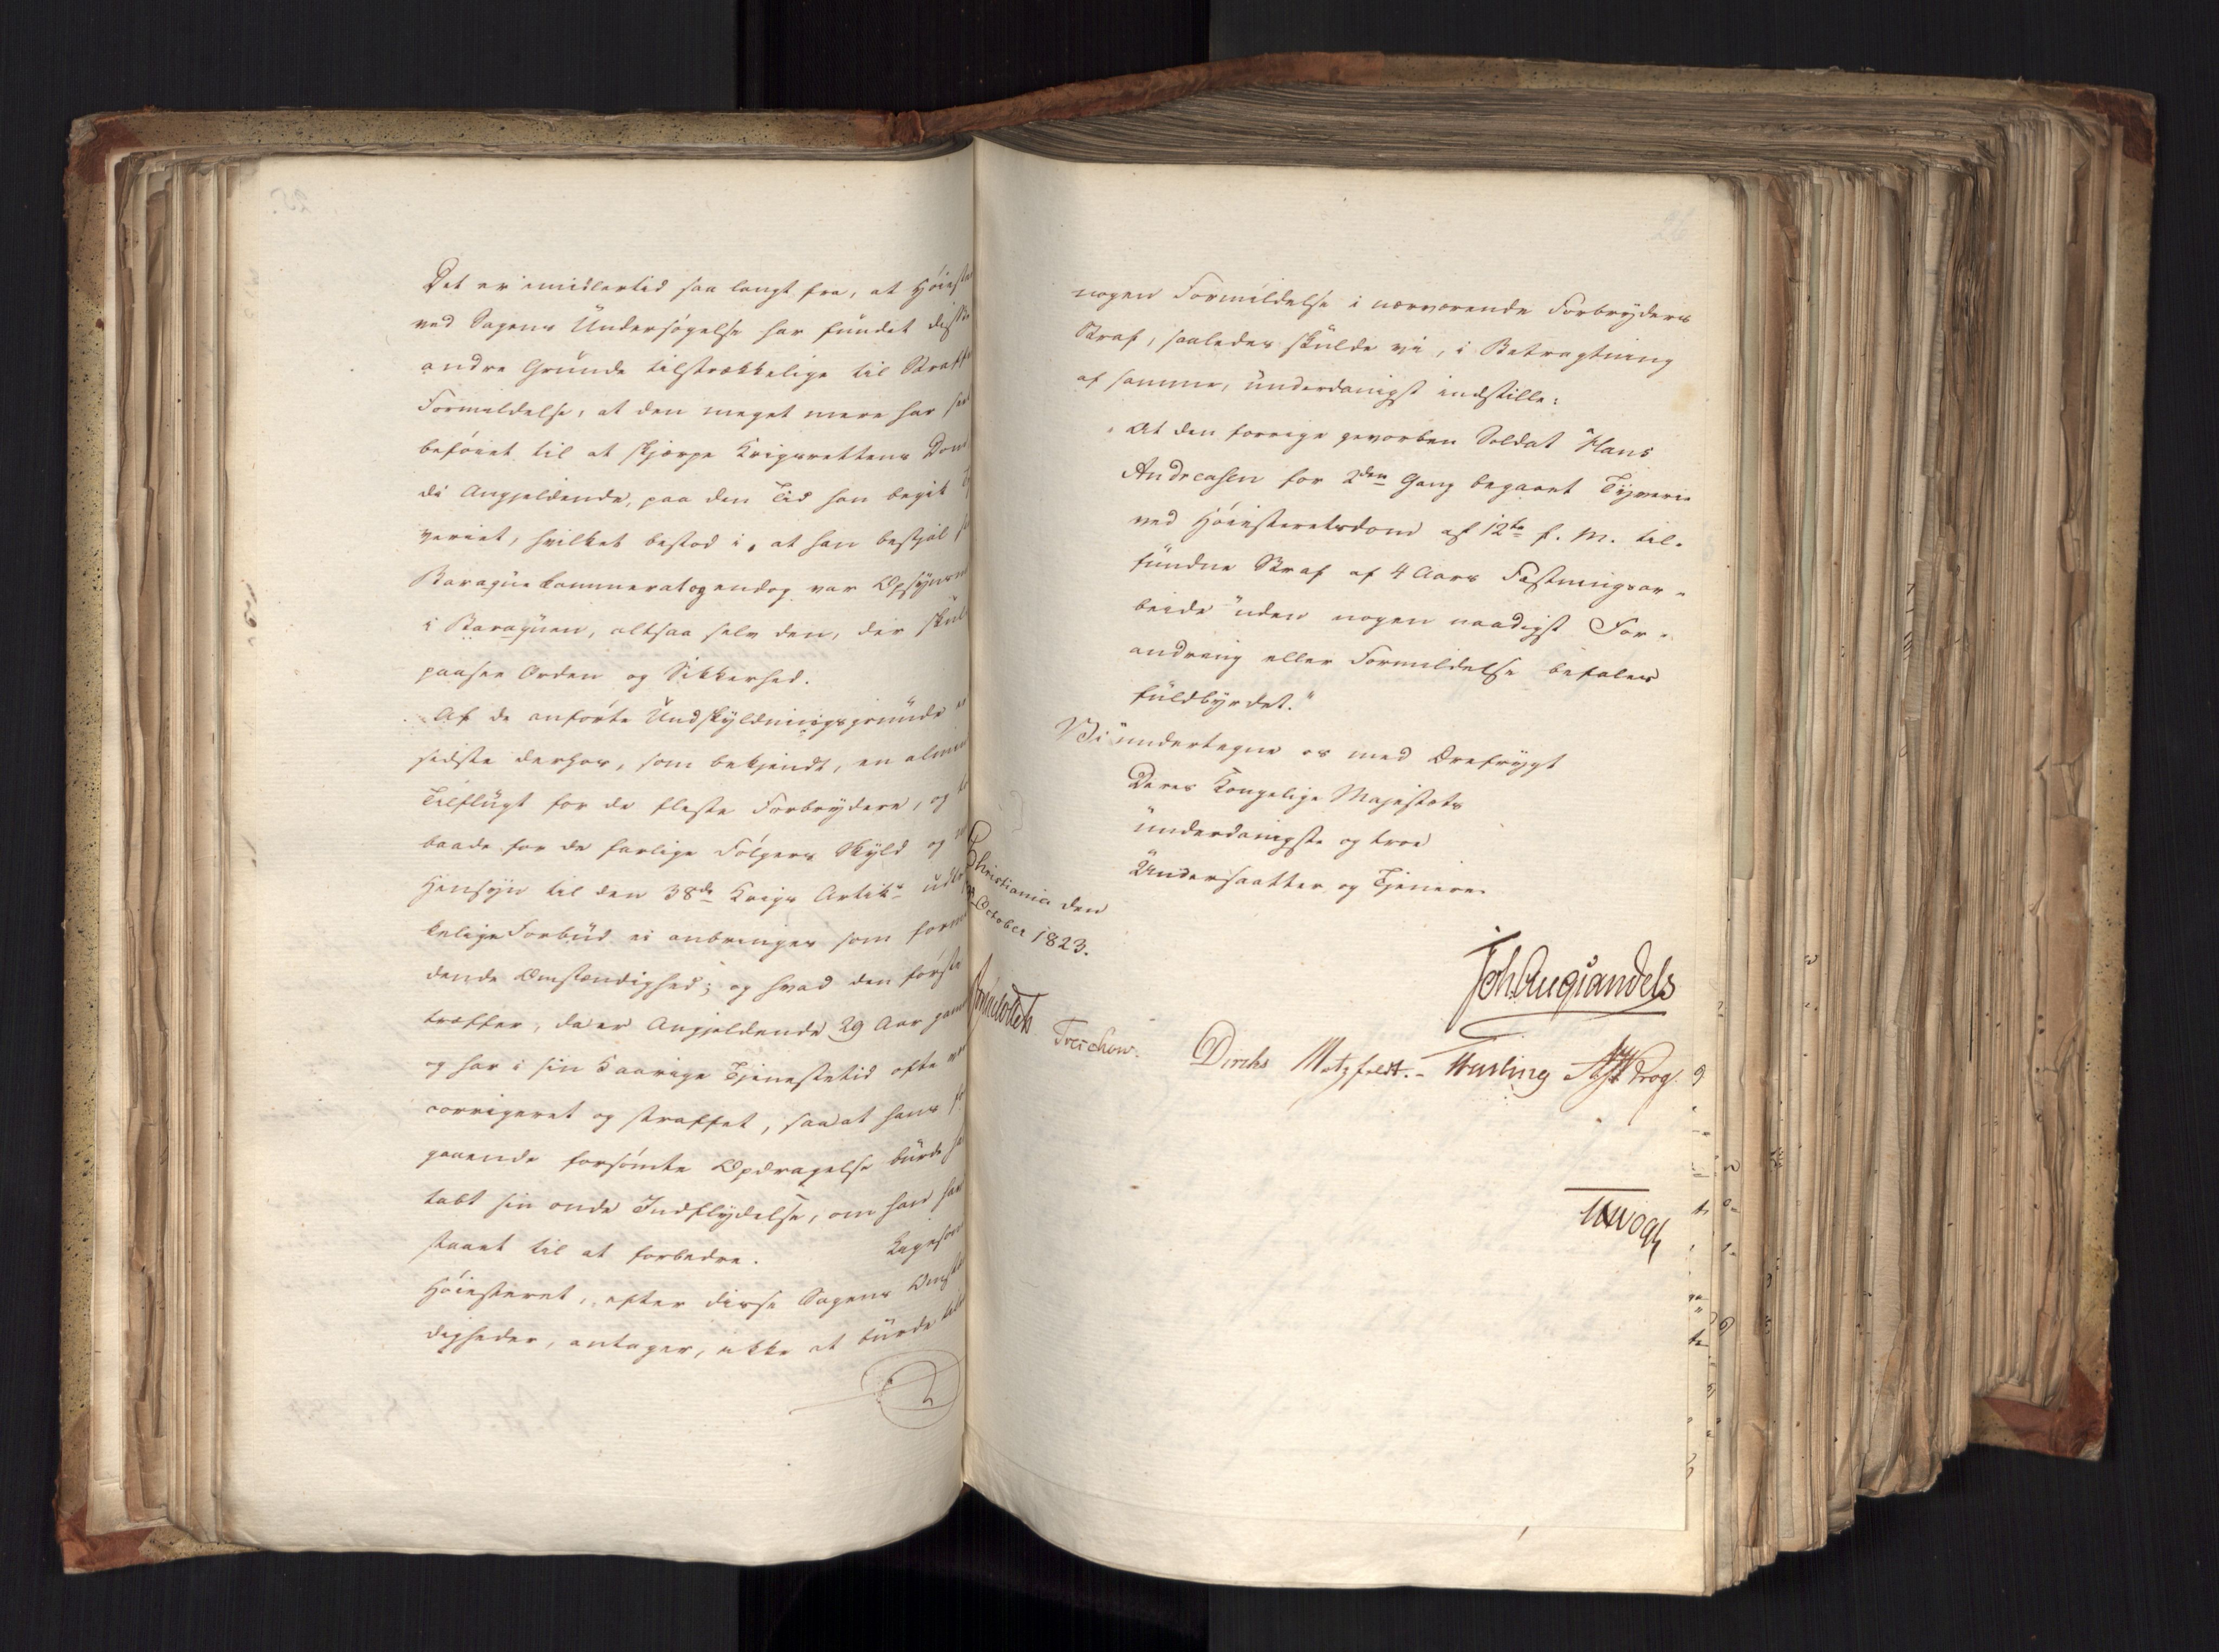 Det er imidlertid saa langt fra, at Høieste
ved Sagens Undersøgelse har fundet disse
andre Grunde tilstrækkelige til Straffe
Formildelse, at den meget mere har
beføiet til at skjærpe Krigsrettens Dom
da Angjeldende, paa den Tid han begik
veriet, hvilket bestod i, at han bestjal
Baraque kammerat og endog var Opsyns
i Baraquen, altsaa selv den, der skul
paasee Orden og Sikkerhed.
Af de anførte Undskyldningsgrunde
sidste derhos, som bekjendt, en almin
Tilflugt for de fleste Forbrydere, og
baade for de farlige Følgers Skyld og
Hensyn til den 38de Krigs Artik: udtr
kelige Forbud ei anbringes som form
dende Omstændighed; og hvad den første
træffer, da er Angjeldende 29 Aar gam
og har i sin 5 aarige Tjenestetid ofte
corrigeret og straffet, saa at hans
gaaende forsømte Opdragelse burde
tabt sin onde Indflydelse, om han hav
staaet til at forbedre.
Høiesteret, efter disse Sagens Omst
digheder, antager, ikke at burde
26
nogen Formildelse i nærværende Forbryders
Straf, saaledes skulde vi, i Betragtning
af samme, underdanigst indstille:
"At den forrige gevorben Soldat Hans
Andreasen for 2den Gang begaaet Tyverie
ved Høiesteretsdom af 12te f. M. til-
fundne Straf af 4 Aars Fæstningsar-
beide uden nogen naadigst For-
andring eller Formildelse befales
fuldbyrdet."
Vi undertegne os med Ærefrygt
Deres Kongelige Majestæts
underdanigste og troe
Undersaatter og Tjenere.
Christiania den
October 1823.
Joh. Aug. Sandels
Treschow.
Diriks Motzfeldt.- Krog.